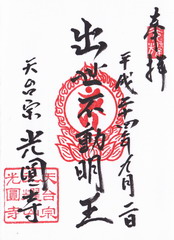 奉拝
平成二十四年九月二日
出世不動明王
天台宗 光圓寺
天台宗
光圓寺